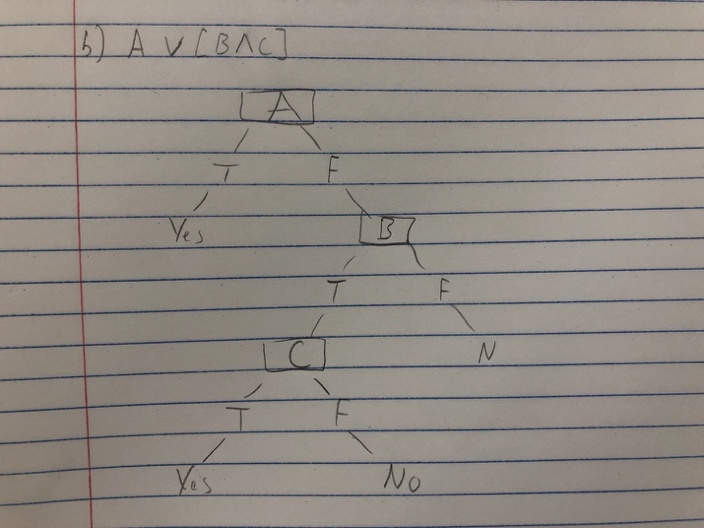 b) A ∨ [B∧C]
A
T F
Yes
B
T F
C N
T F
Yes No